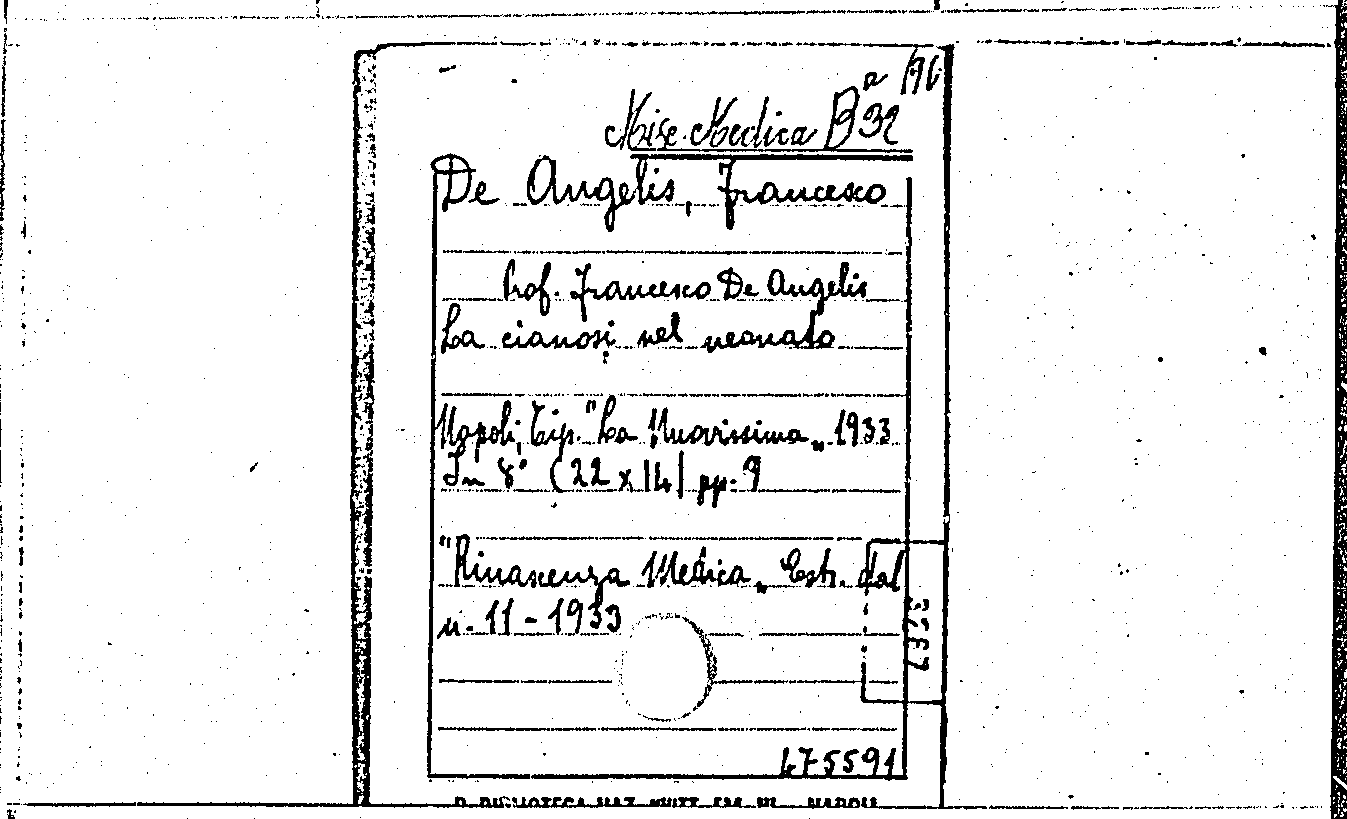 Misc. Medica B^a 32
De Angelis, Francesco
Prof. Francesco De Angelis
La cianosi nel neonato
Napoli, Tip. "La Nuovissima„ 1933
In 8° (22 x 14) pp. 9
"Rinascenza Medica„ Estr. dal
n. 11 - 1933
475591